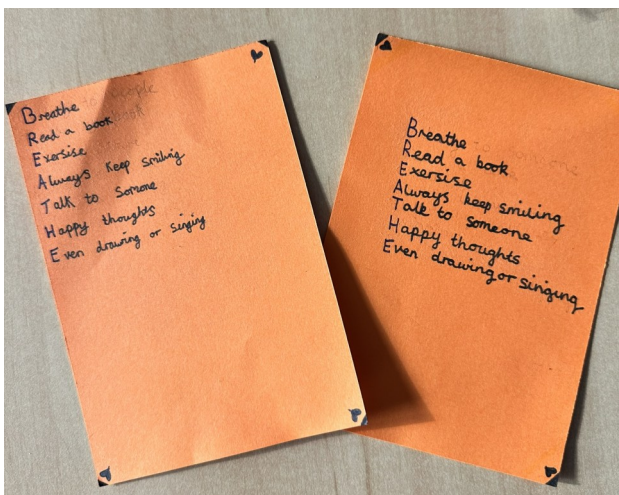 Breathe
Read a book
Exersise
Always keep smiling
Talk to Somone
Happy thoughts
Even drawing or singing
Breathe
Read a book
Exersise
Always keep smiling
Talk to someone
Happy thoughts
Even drawing or singing